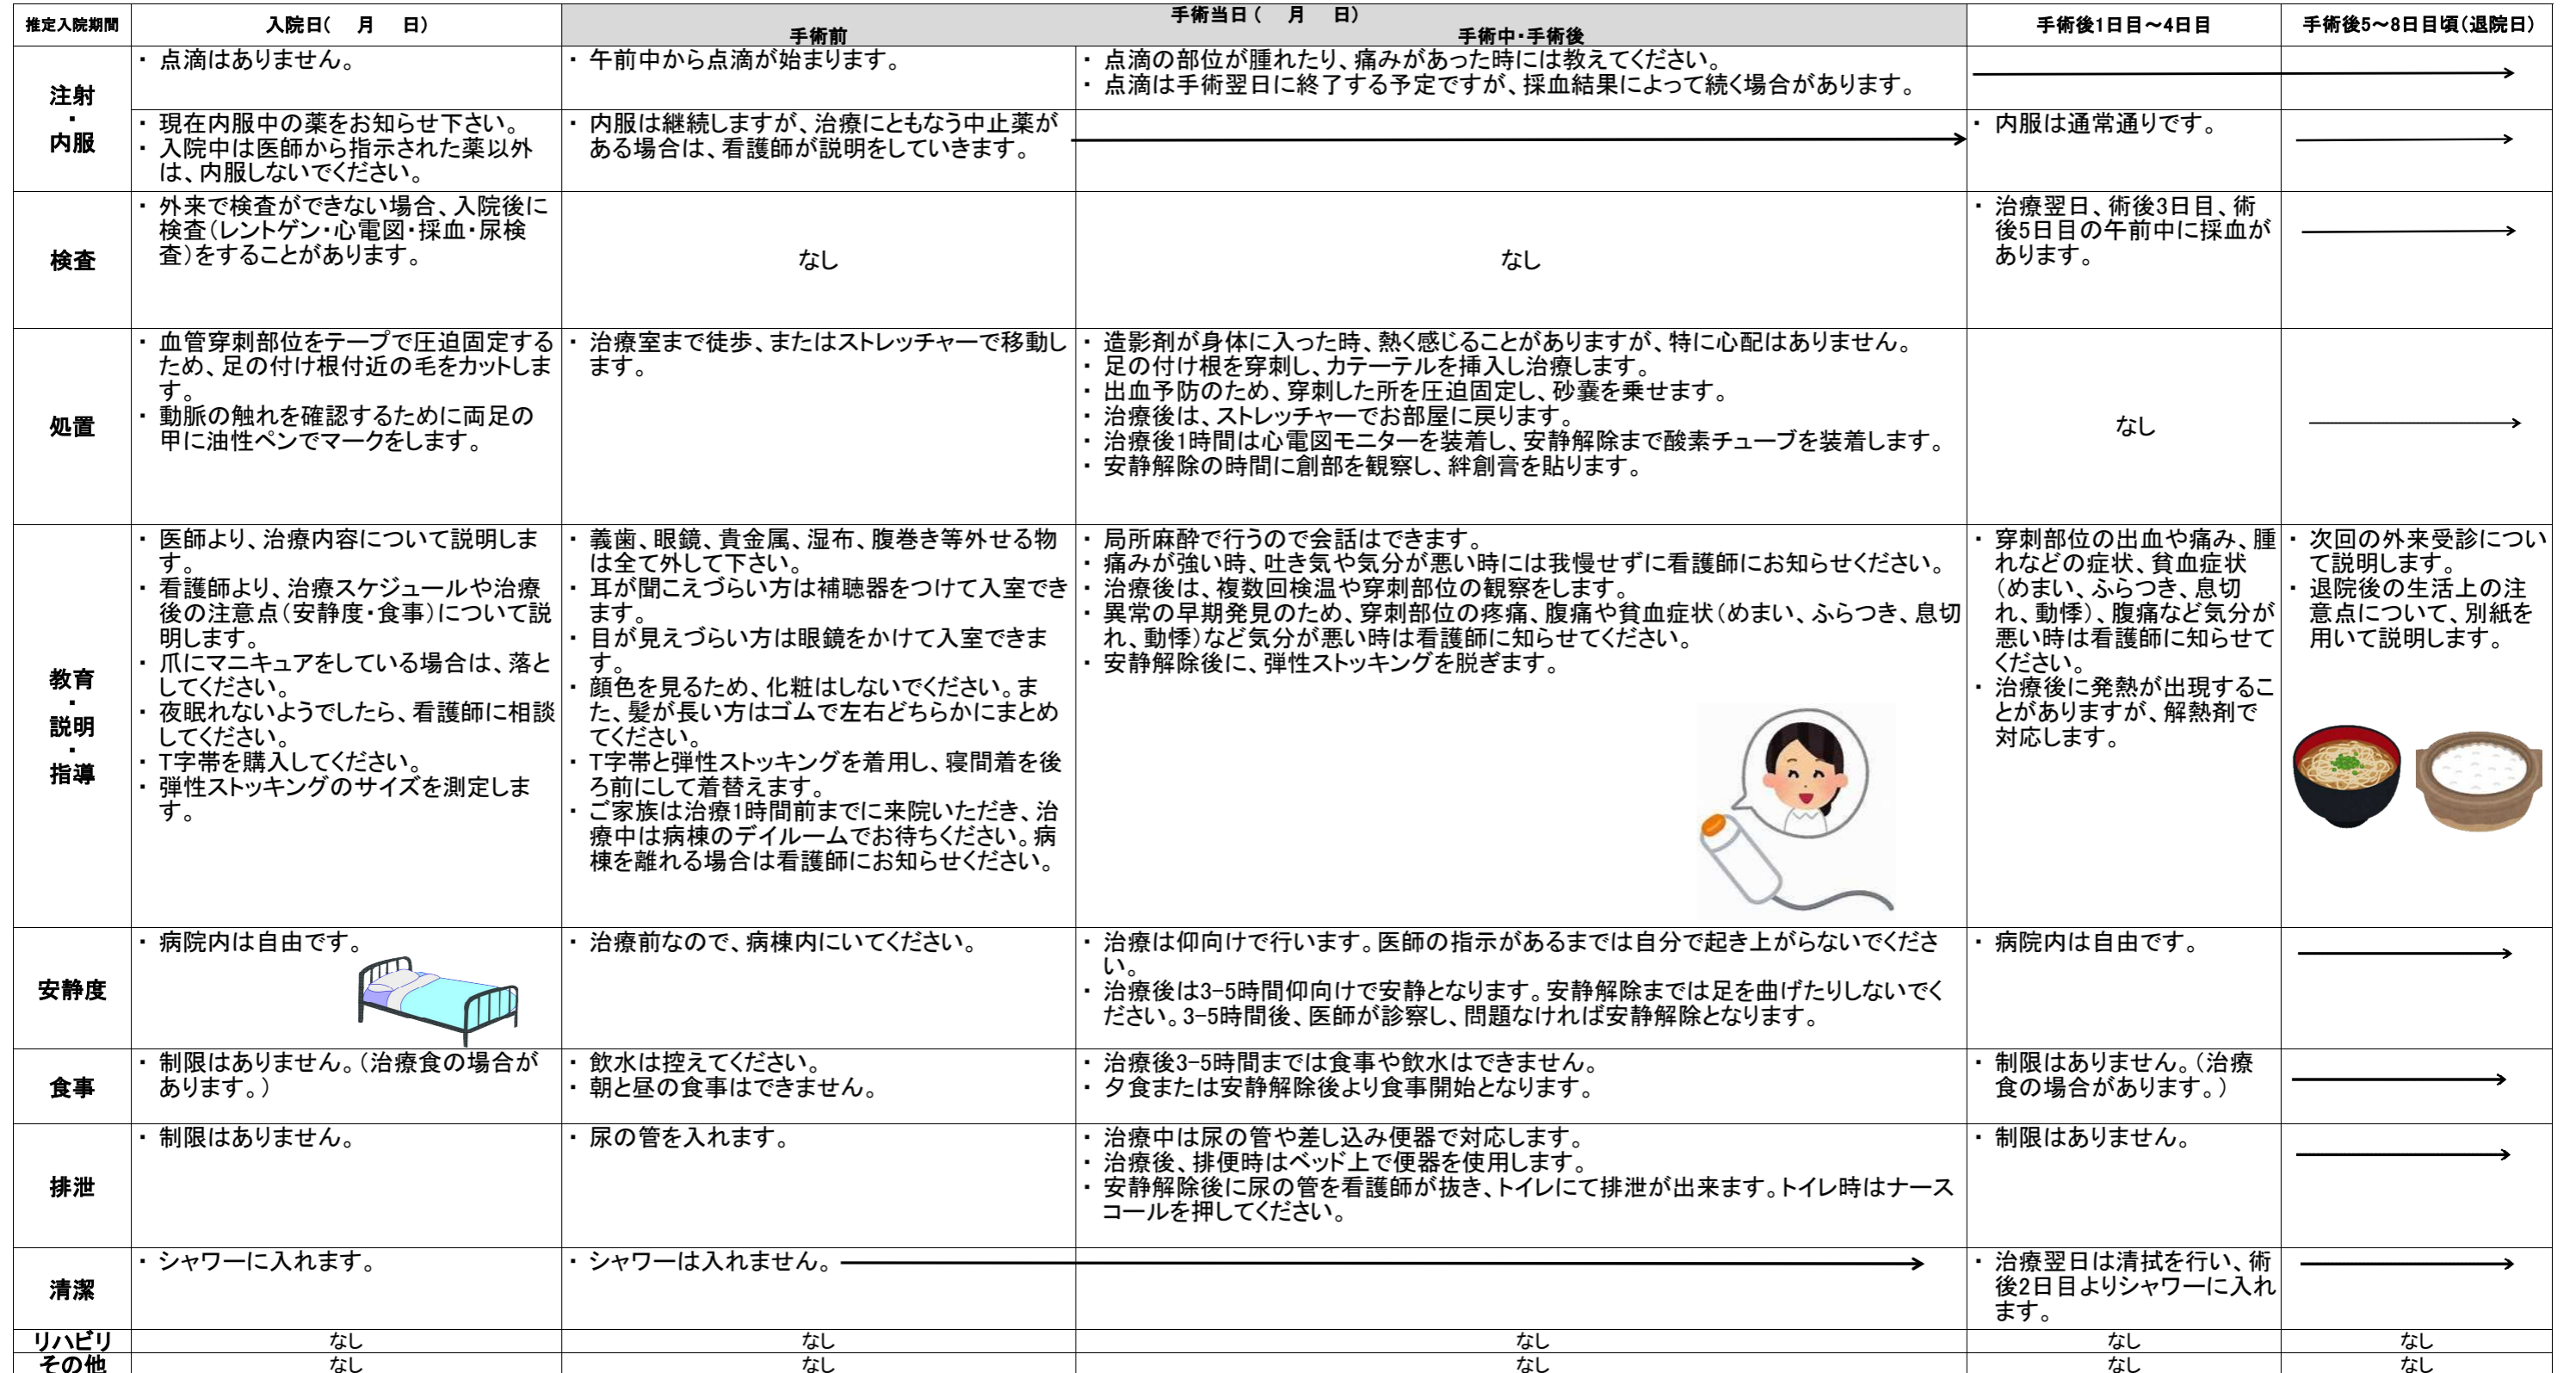 推定入院期間
入院日(　月　日)
手術当日(　月　日)
手術前
手術中・手術後
手術後1日目～4日目
手術後5～8日目頃(退院日)
注射
・
内服
・ 点滴はありません。
・ 午前中から点滴が始まります。
・ 点滴の部位が腫れたり、痛みがあった時には教えてください。
・ 点滴は手術翌日に終了する予定ですが、採血結果によって続く場合があります。
・ 現在内服中の薬をお知らせ下さい。
・ 入院中は医師から指示された薬以外
は、内服しないでください。
・ 内服は継続しますが、治療にともなう中止薬が
ある場合は、看護師が説明をしていきます。
・ 内服は通常通りです。
検査
・ 外来で検査ができない場合、入院後に
検査(レントゲン・心電図・採血・尿検
査)をすることがあります。
なし
なし
・ 治療翌日、術後3日目、術
後5日目の午前中に採血が
あります。
処置
・ 血管穿刺部位をテープで圧迫固定する
ため、足の付け根付近の毛をカットしま
す。
・ 動脈の触れを確認するために両足の
甲に油性ペンでマークをします。
・ 治療室まで徒歩、またはストレッチャーで移動し
ます。
・ 造影剤が身体に入った時、熱く感じることがありますが、特に心配はありません。
・ 足の付け根を穿刺し、カテーテルを挿入し治療します。
・ 出血予防のため、穿刺した所を圧迫固定し、砂嚢を乗せます。
・ 治療後は、ストレッチャーでお部屋に戻ります。
・ 治療後1時間は心電図モニターを装着し、安静解除まで酸素チューブを装着します。
・ 安静解除の時間に創部を観察し、絆創膏を貼ります。
なし
教育
・
説明
・
指導
・ 医師より、治療内容について説明しま
す。
・ 看護師より、治療スケジュールや治療
後の注意点(安静度・食事)について説
明します。
・ 爪にマニキュアをしている場合は、落と
してください。
・ 夜眠れないようでしたら、看護師に相談
してください。
・ T字帯を購入してください。
・ 弾性ストッキングのサイズを測定しま
す。
・ 義歯、眼鏡、貴金属、湿布、腹巻き等外せる物
は全て外して下さい。
・ 耳が聞こえづらい方は補聴器をつけて入室でき
ます。
・ 目が見えづらい方は眼鏡をかけて入室できま
す。
・ 顔色を見るため、化粧はしないでください。ま
た、髪が長い方はゴムで左右どちらかにまとめ
てください。
・ T字帯と弾性ストッキングを着用し、寝間着を後
ろ前にして着替えます。
・ ご家族は治療1時間前までに来院いただき、治
療中は病棟のデイルームでお待ちください。病
棟を離れる場合は看護師にお知らせください。
・ 局所麻酔で行うので会話はできます。
・ 痛みが強い時、吐き気や気分が悪い時には我慢せずに看護師にお知らせください。
・ 治療後は、複数回検温や穿刺部位の観察をします。
・ 異常の早期発見のため、穿刺部位の疼痛、腹痛や貧血症状(めまい、ふらつき、息切
れ、動悸)など気分が悪い時は看護師に知らせてください。
・ 安静解除後に、弾性ストッキングを脱ぎます。
・ 穿刺部位の出血や痛み、腫
れなどの症状、貧血症状
(めまい、ふらつき、息切
れ、動悸)、腹痛など気分が
悪い時は看護師に知らせて
ください。
・ 治療後に発熱が出現するこ
とがありますが、解熱剤で
対応します。
・ 次回の外来受診につい
て説明します。
・ 退院後の生活上の注
意点について、別紙を
用いて説明します。
安静度
・ 病院内は自由です。
・ 治療前なので、病棟内にいてください。
・ 治療は仰向けで行います。医師の指示があるまでは自分で起き上がらないでくださ
い。
・ 治療後は3-5時間仰向けで安静となります。安静解除までは足を曲げたりしないでく
ださい。3-5時間後、医師が診察し、問題なければ安静解除となります。
・ 病院内は自由です。
食事
・ 制限はありません。(治療食の場合が
あります。)
・ 飲水は控えてください。
・ 朝と昼の食事はできません。
・ 治療後3-5時間までは食事や飲水はできません。
・ 夕食または安静解除後より食事開始となります。
・ 制限はありません。(治療
食の場合があります。)
排泄
・ 制限はありません。
・ 尿の管を入れます。
・ 治療中は尿の管や差し込み便器で対応します。
・ 治療後、排便時はベッド上で便器を使用します。
・ 安静解除後に尿の管を看護師が抜き、トイレにて排泄が出来ます。トイレ時はナース
コールを押してください。
・ 制限はありません。
清潔
・ シャワーに入れます。
・ シャワーは入れません。
・ 治療翌日は清拭を行い、術
後2日目よりシャワーに入れ
ます。
リハビリ
なし
なし
なし
なし
なし
その他
なし
なし
なし
なし
なし